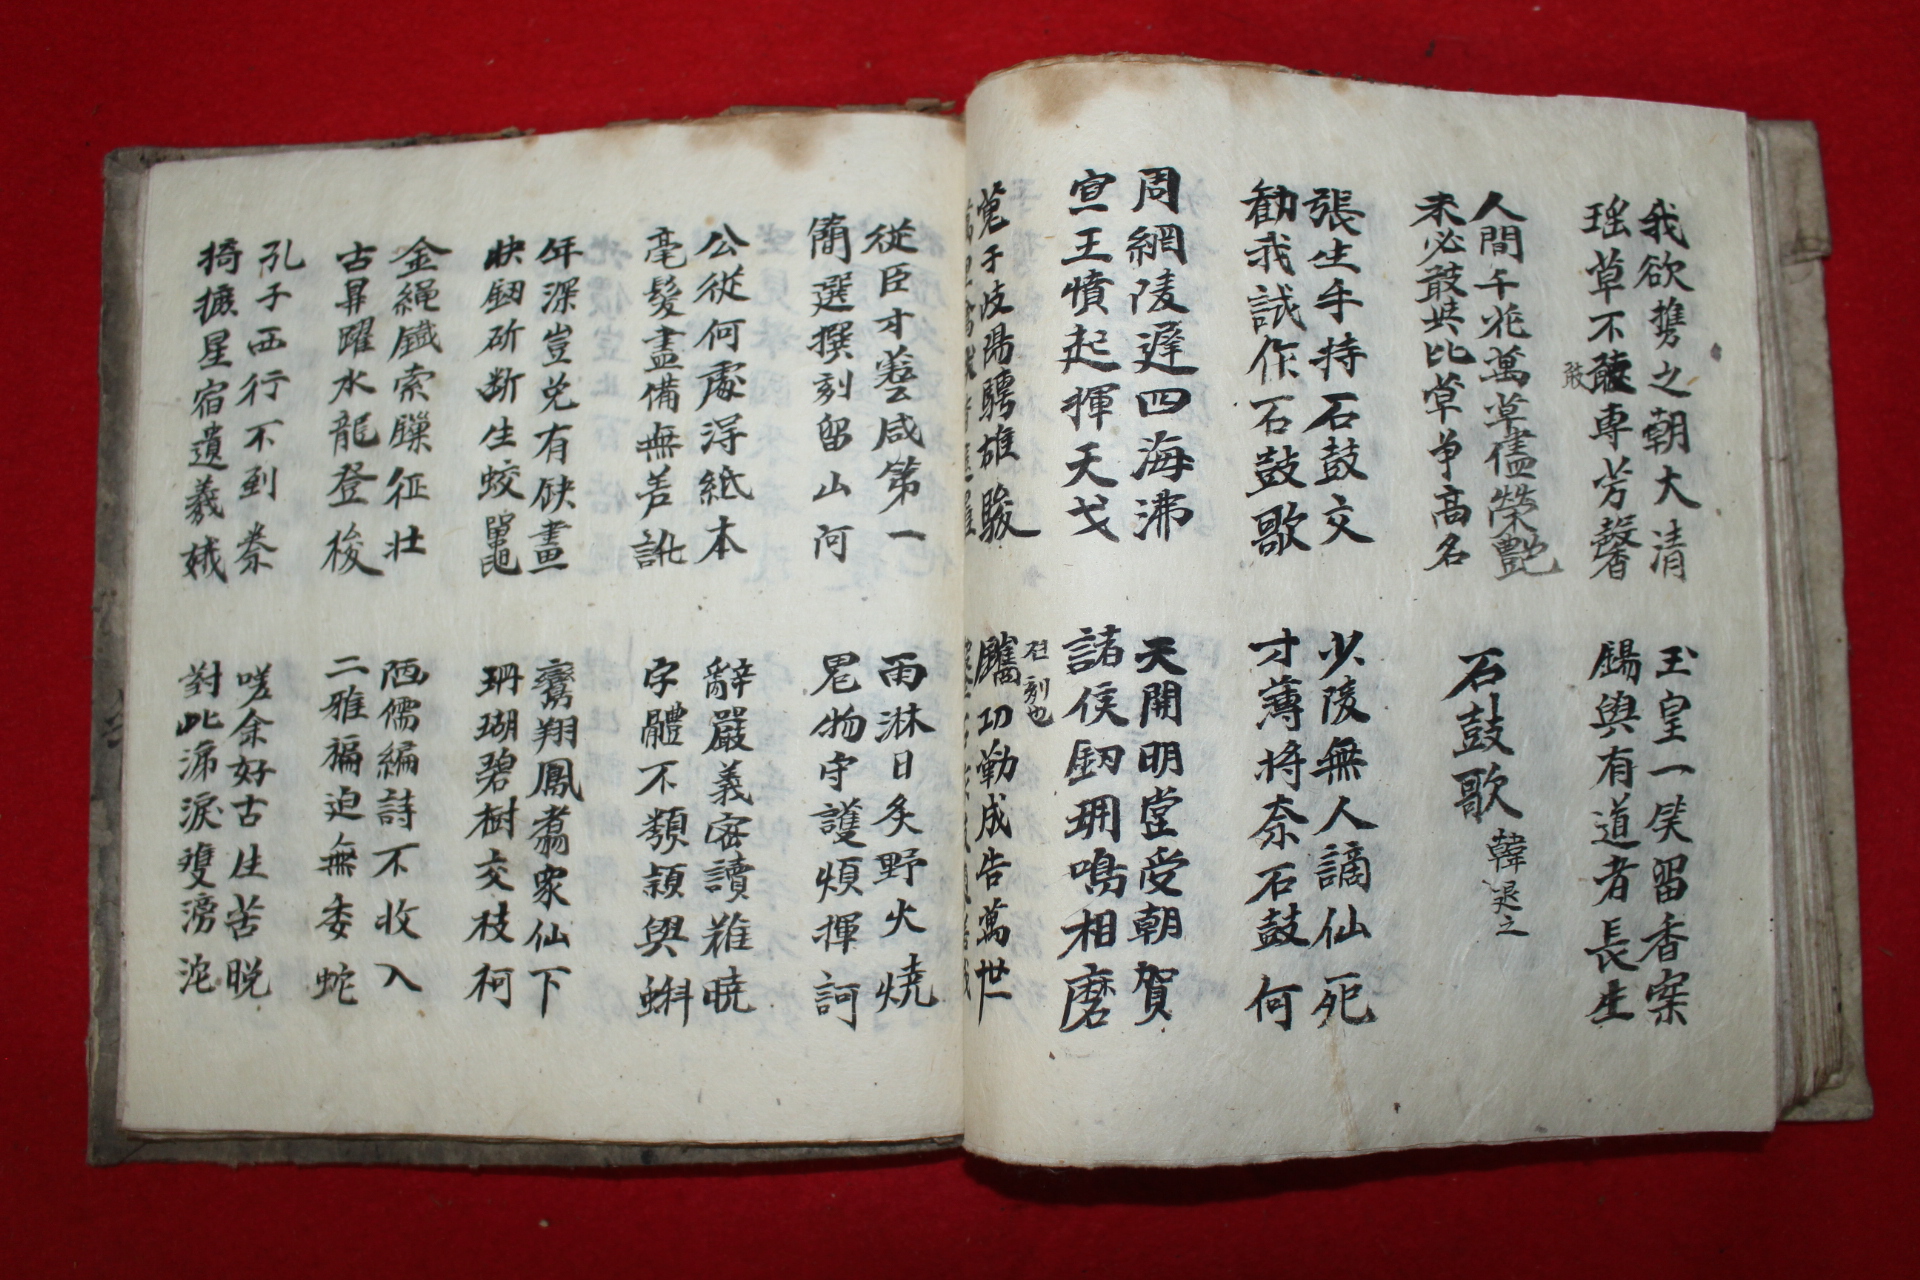 我欲携之朝大清
瑶草不敢專芳馨
敢
玉皇一笑留香案
賜與有道者長生
人間千花萬草儘榮艶
未必敢共比草爭高名
石鼓歌
韓退之
張生手持石鼓文
勸我試作石鼓歌
少陵無人謫仙死
才薄將奈石鼓何
周網陵遲四海沸
宣王憤起揮天戈
天開明堂受朝賀
諸侯釼珮鳴相磨
蒐于岐陽騁雄駿
鐫功勒成告萬世
전 刻也
從臣才藝咸第一
簡選撰刻留山河
雨淋日炙野火燒
鬼物守護煩揮訶
公從何處淂紙本
毫髮盡備無差訛
辭嚴義密讀難曉
字體不類頴與蝌
年深豈免有缺畫
快釼斫断生蛟鼉
鸞翔鳳翥衆仙下
珊瑚碧樹交枝柯
金繩鐵索鏁征壮
古鼎躍水龍登梭
陋儒編詩不收入
二雅褊迫無委蛇
孔子西行不到秦
掎摭星宿遺羲娥
嗟余好古生苦晩
對此涕淚雙滂沱